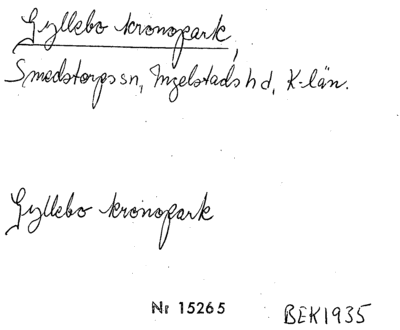 Gyllebo kronopark,
Smedstorps sn, Ingelstads hd, K-län.
Gyllebo kronopark
Nr 15265 BEK1935